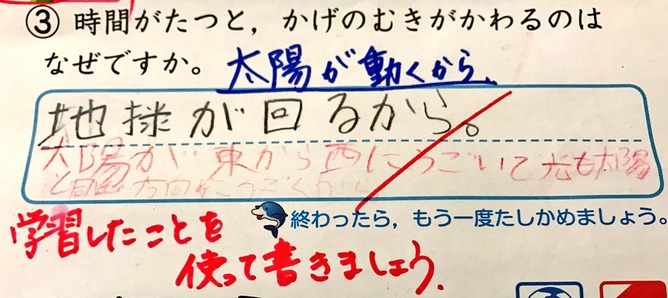 ③ 時間がたつと，かげのむきがかわるのは
なぜですか。 太陽が動くから。
地球が回るから。
太陽が東から西にうごいて光も太陽
終わったら，もう一度たしかめましょう。
学習したことを
使って書きましょう。